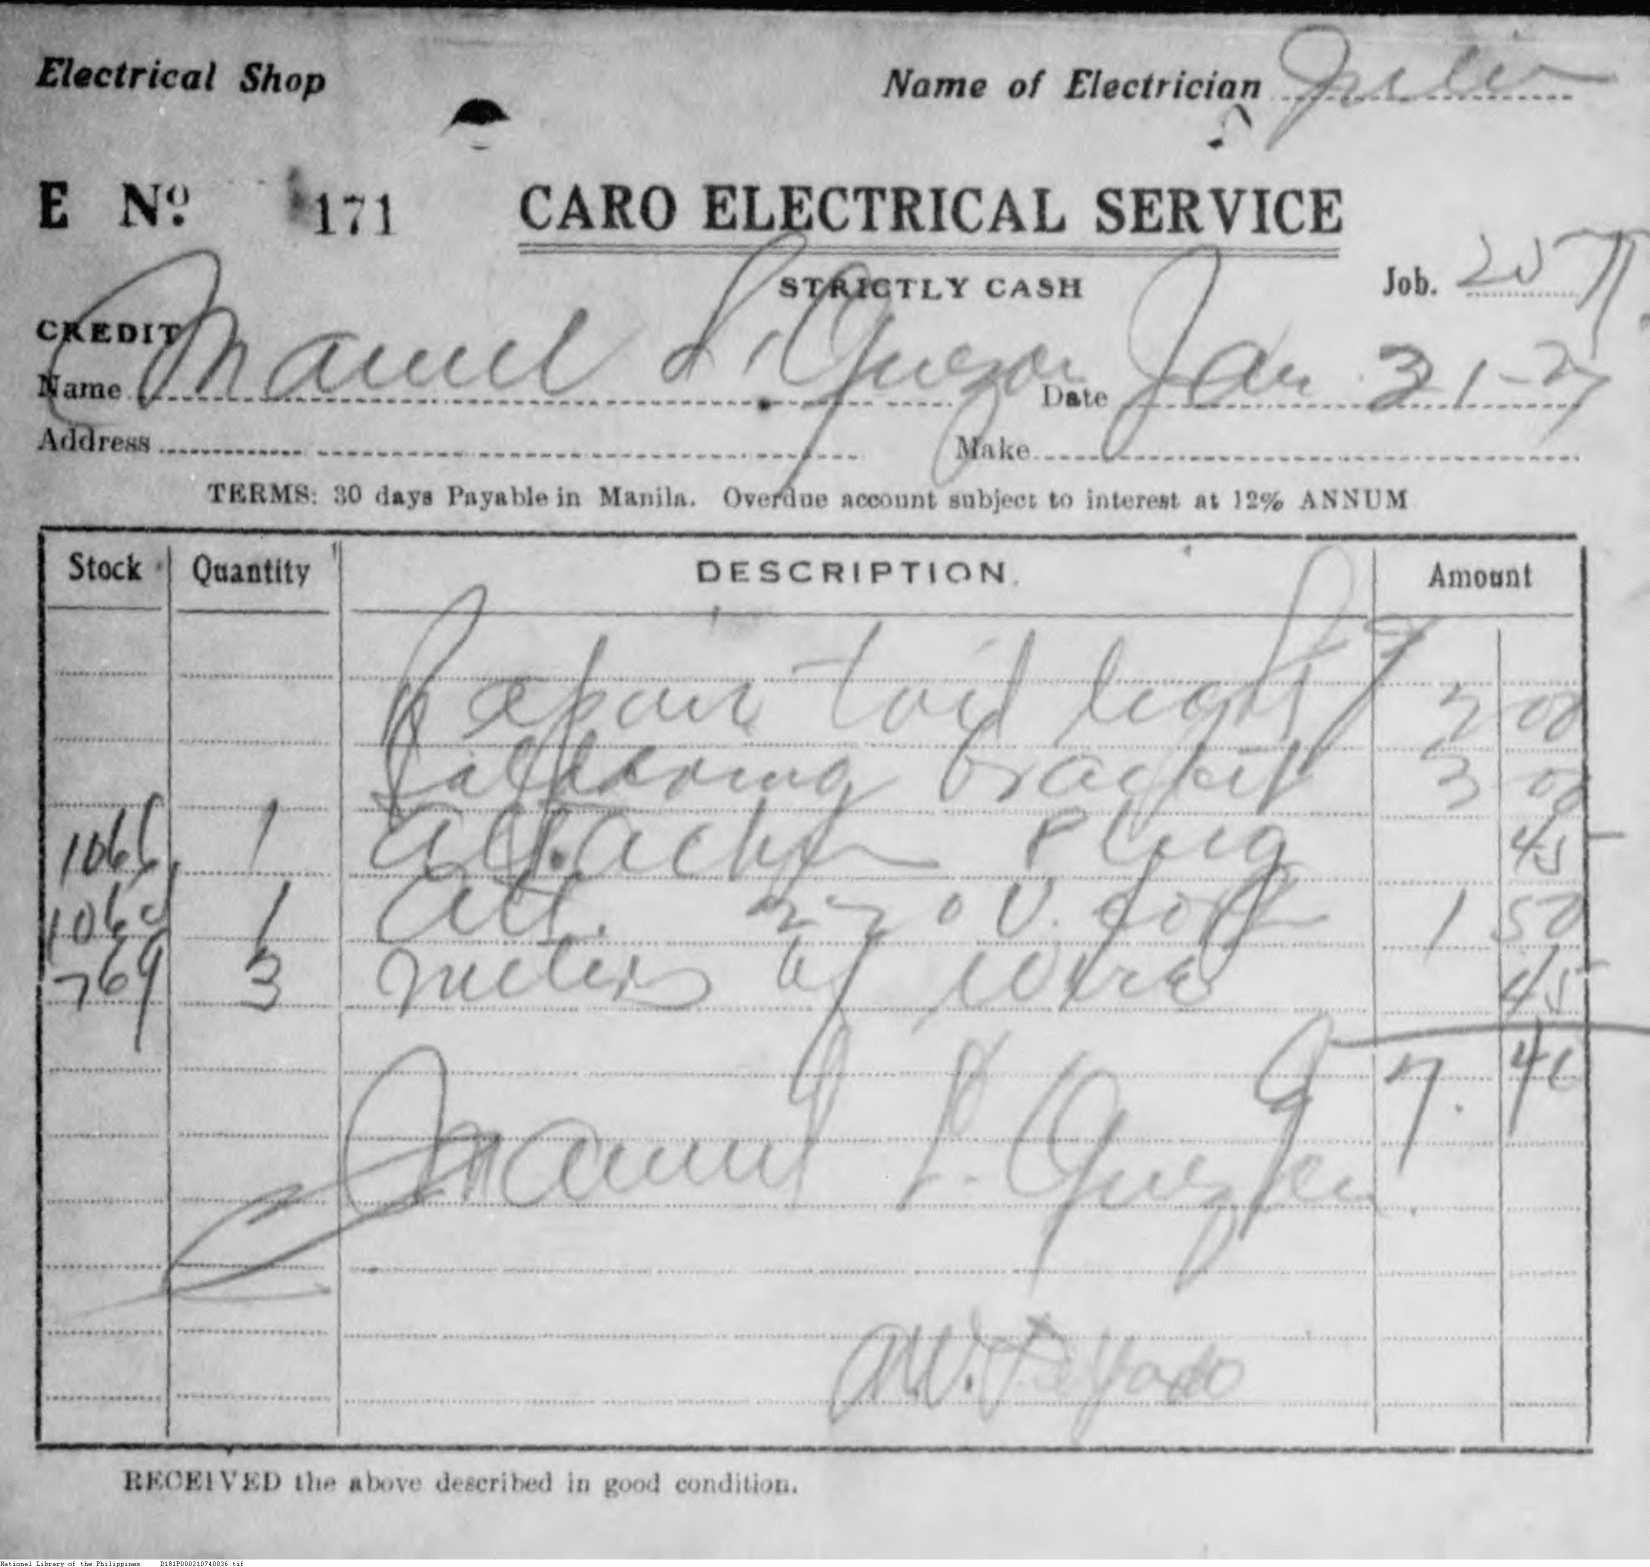 Electrical Shop
Name of Electrician Julio
E Nº 171 CARO ELECTRICAL SERVICE
STRICTLY CASH
Job.
CREDIT
Name Manuel L. Quezon Date Jan 31-27
Address Make
TERMS: 30 days Payable in Manila. Overdue account subject to interest at 12% ANNUM
Stock Quantity DESCRIPTION Amount
Repair tail light 2 00
bracket 3 00
1066 1 Plug 45
1 Att. 220 V. 1 50
769 3 meters of wire 45
7. 40
Manuel L. Quezon
RECEIVED the above described in good condition.
National Library of the Philippines D181P000210740036.tif